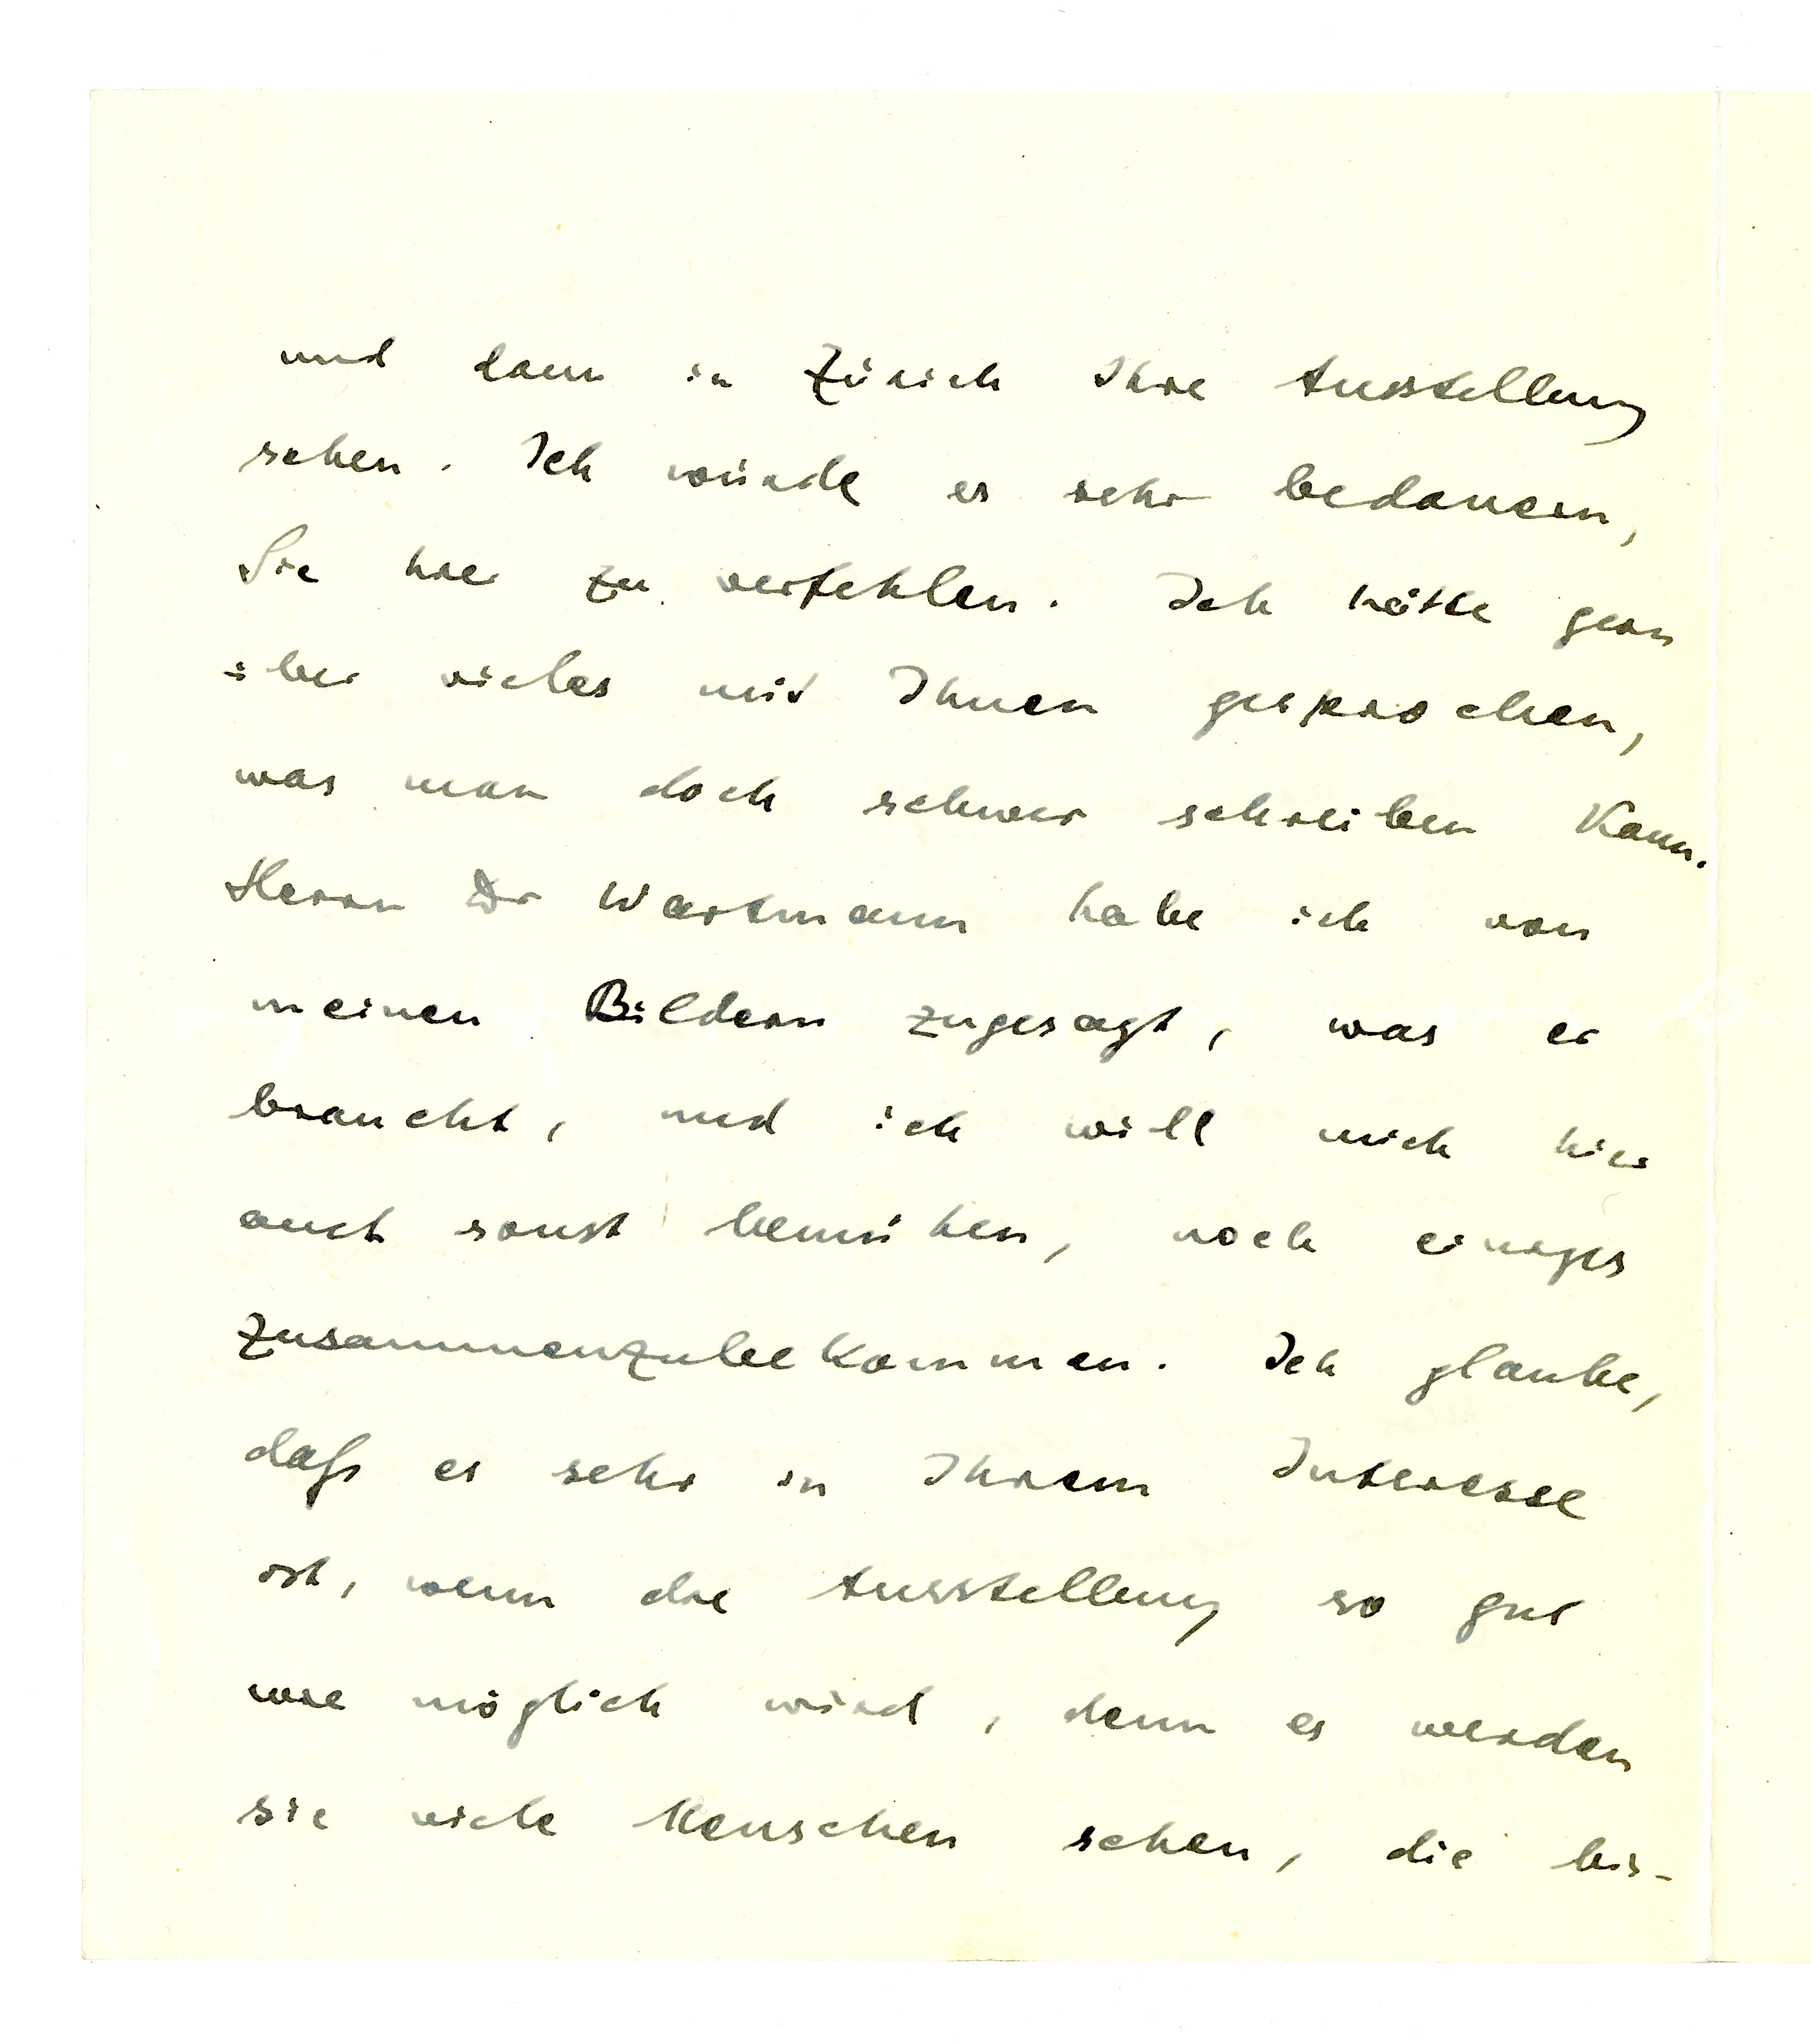 und dann in Zürich Ihre Ausstellung
sehen. Ich würde es sehr bedauern,
Sie hier zu verfehlen. Ich hätte gern
über vieles mit Ihnen gesprochen,
was man doch schwer schreiben kann.
Herrn Dr Wartmann habe ich von
meinen Bildern zugesagt, was er
braucht, und ich will mich hier
auch sonst bemühen, noch einiges
zusammenzubekommen. Ich glaube,
daß es sehr in Ihrem Interesse
ist, wenn die Ausstellung so gut
wie möglich wird, denn es werden
sie viele Menschen sehen, die bis-